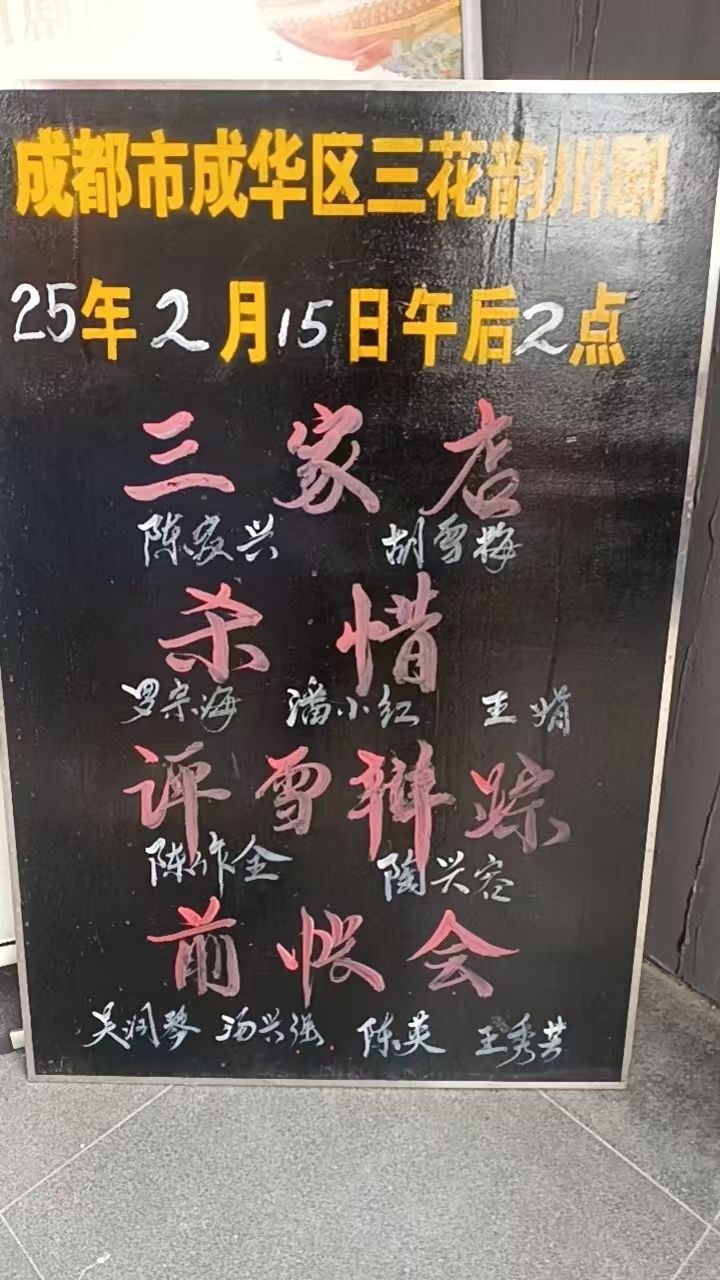 成都市成华区三花韵川剧
25年2月15日午后2点
三家店
陈家兴 胡雪梅
杀惜
罗宗海 潘小红 王娟
评雪辩踪
陈作全 陶兴容
前帐会
吴润琴 汤兴强 陈英 王秀芸